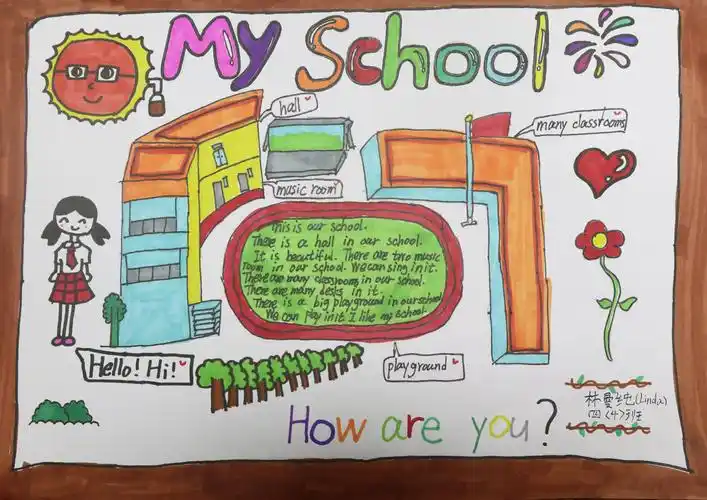 My School
hall
many classrooms
music room
This is our school.
There is a hall in our school.
It is beautiful. There are two music
room in our school. We can sing in it.
There are many classrooms in our school.
There are many desks in it.
There is a big playground in our school
We can play in it I like my school.
Hello! Hi!
playground
How are you?
林曼纯(Linda)
四〈4〉班